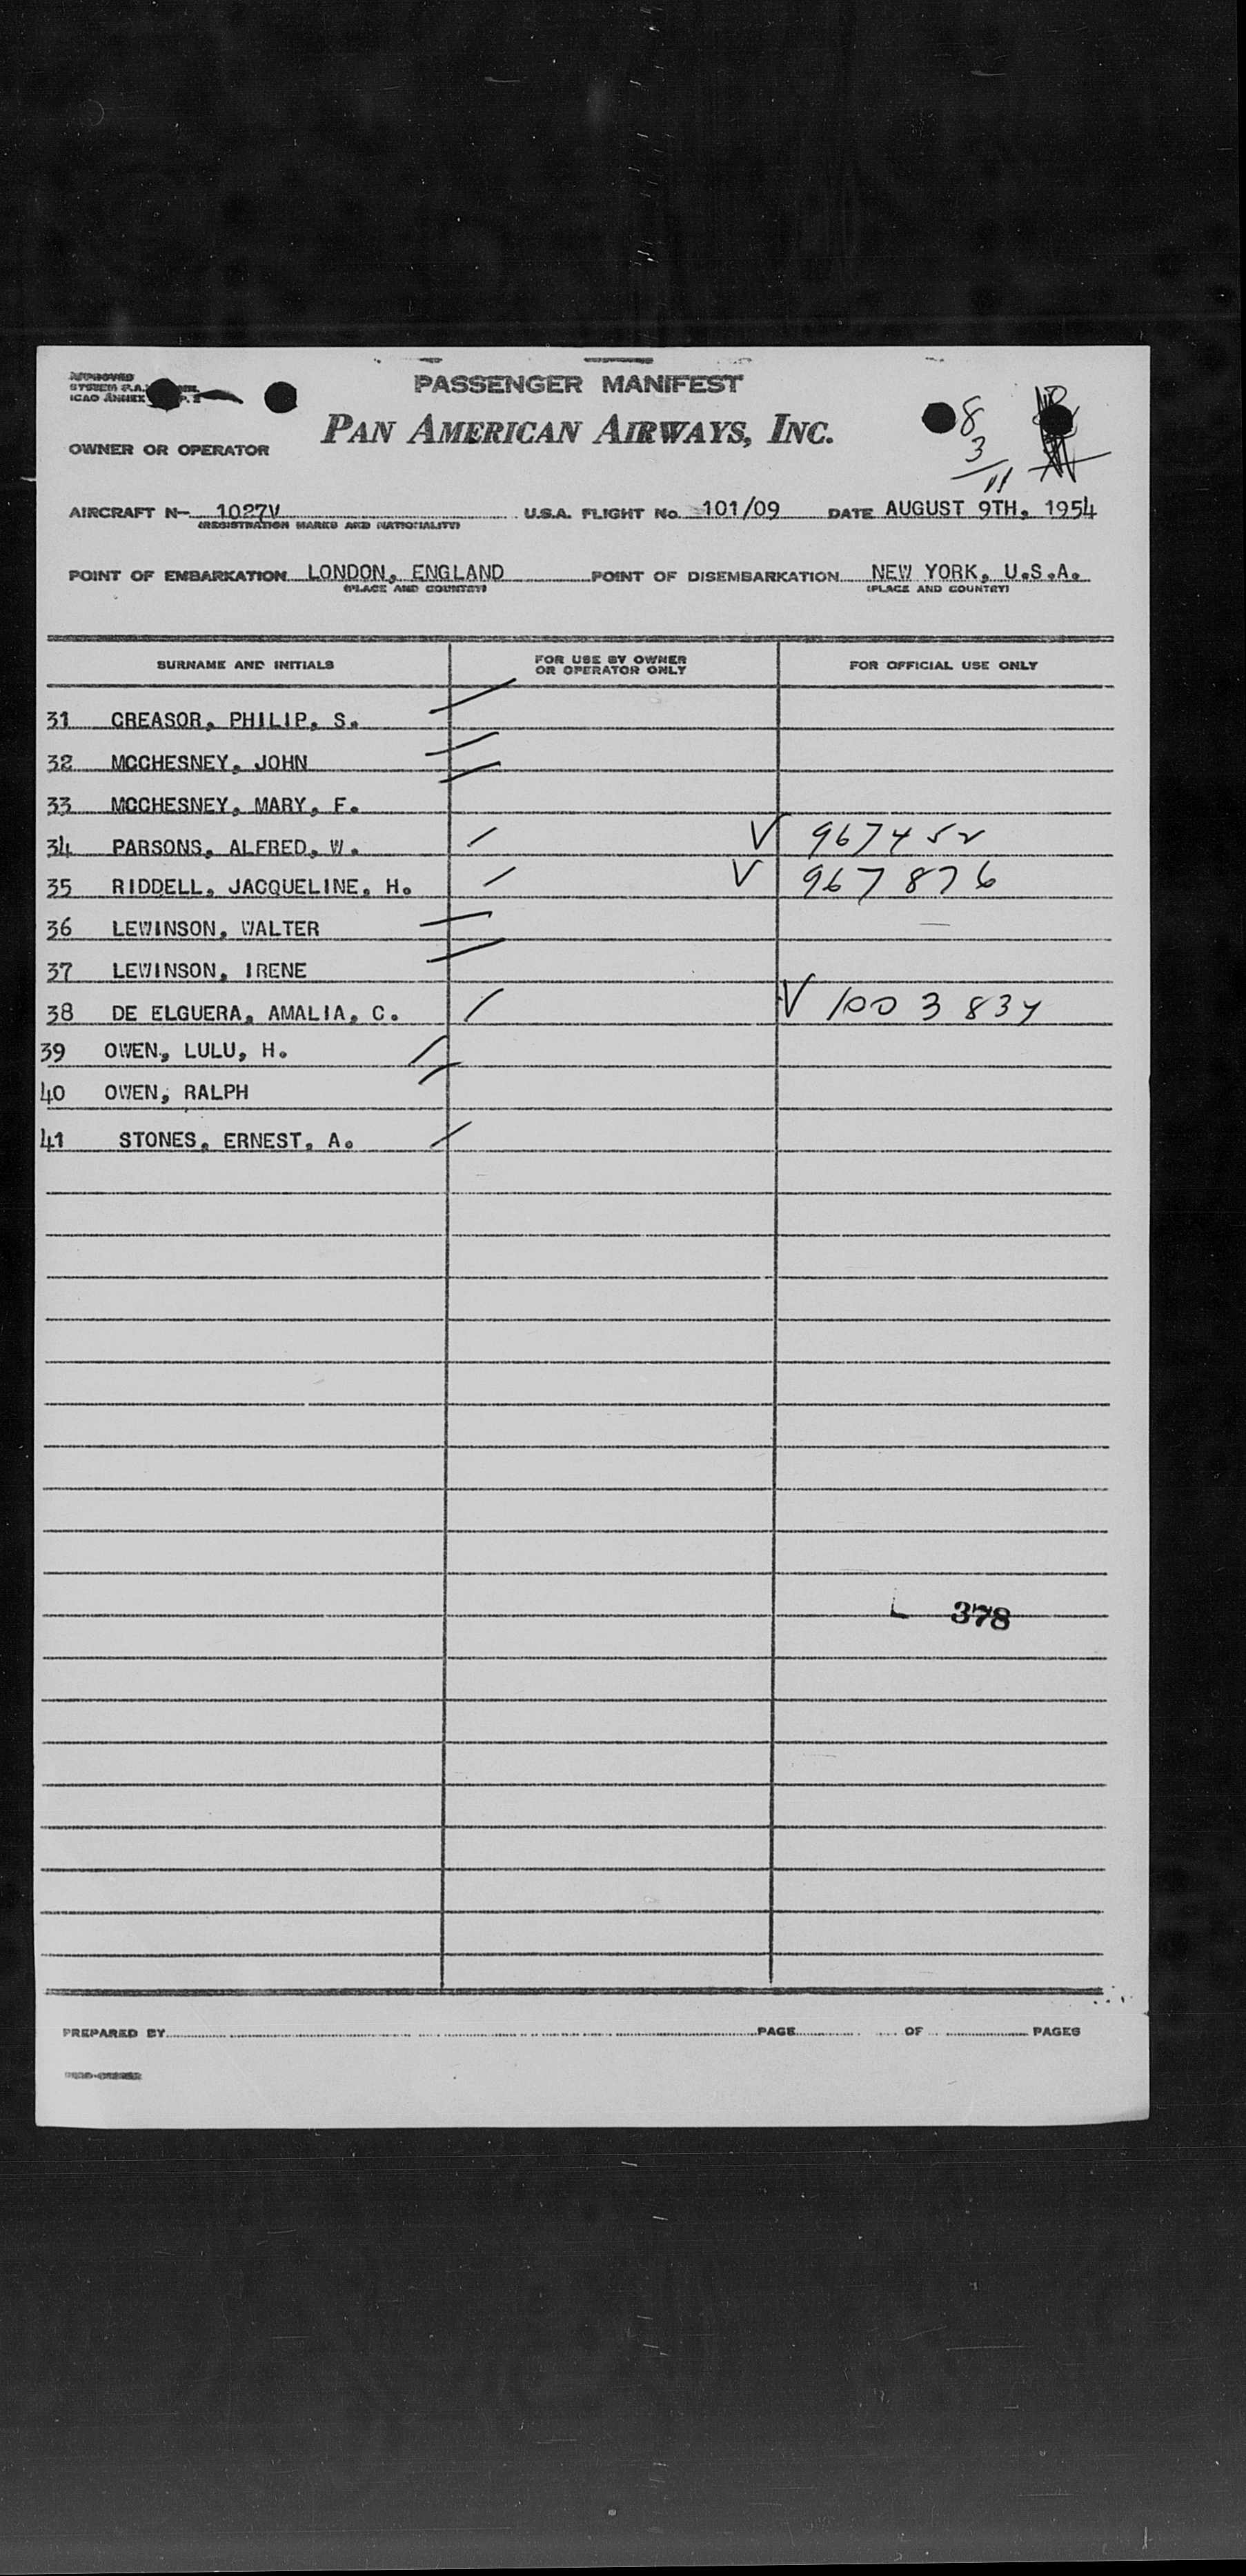 PASSENGER MANIFEST
APPROVED
ICAO ANNEX
PAN AMERICAN AIRWAYS, INC.
8
3
11
OWNER OR OPERATOR
AIRCRAFT N- 1027V U.S.A. FLIGHT No. 101/09 DATE AUGUST 9TH, 1954
(REGISTRATION MARKS AND NATIONALITY)
POINT OF EMBARKATION LONDON, ENGLAND POINT OF DISEMBARKATION NEW YORK, U.S.A.
(PLACE AND COUNTRY) (PLACE AND COUNTRY)
SURNAME AND INITIALS FOR USE BY OWNER OR OPERATOR ONLY FOR OFFICIAL USE ONLY
31 CREASOR, PHILIP, S.
32 MCCHESNEY, JOHN
33 MCCHESNEY, MARY, F.
34 PARSONS, ALFRED, W. V 967452
35 RIDDELL, JACQUELINE, H. V 967876
36 LEWINSON, WALTER
37 LEWINSON, IRENE
38 DE ELGUERA, AMALIA, C. V 1003834
39 OWEN, LULU, H.
40 OWEN, RALPH
41 STONES, ERNEST, A.
L 378
PREPARED BY PAGE OF PAGES